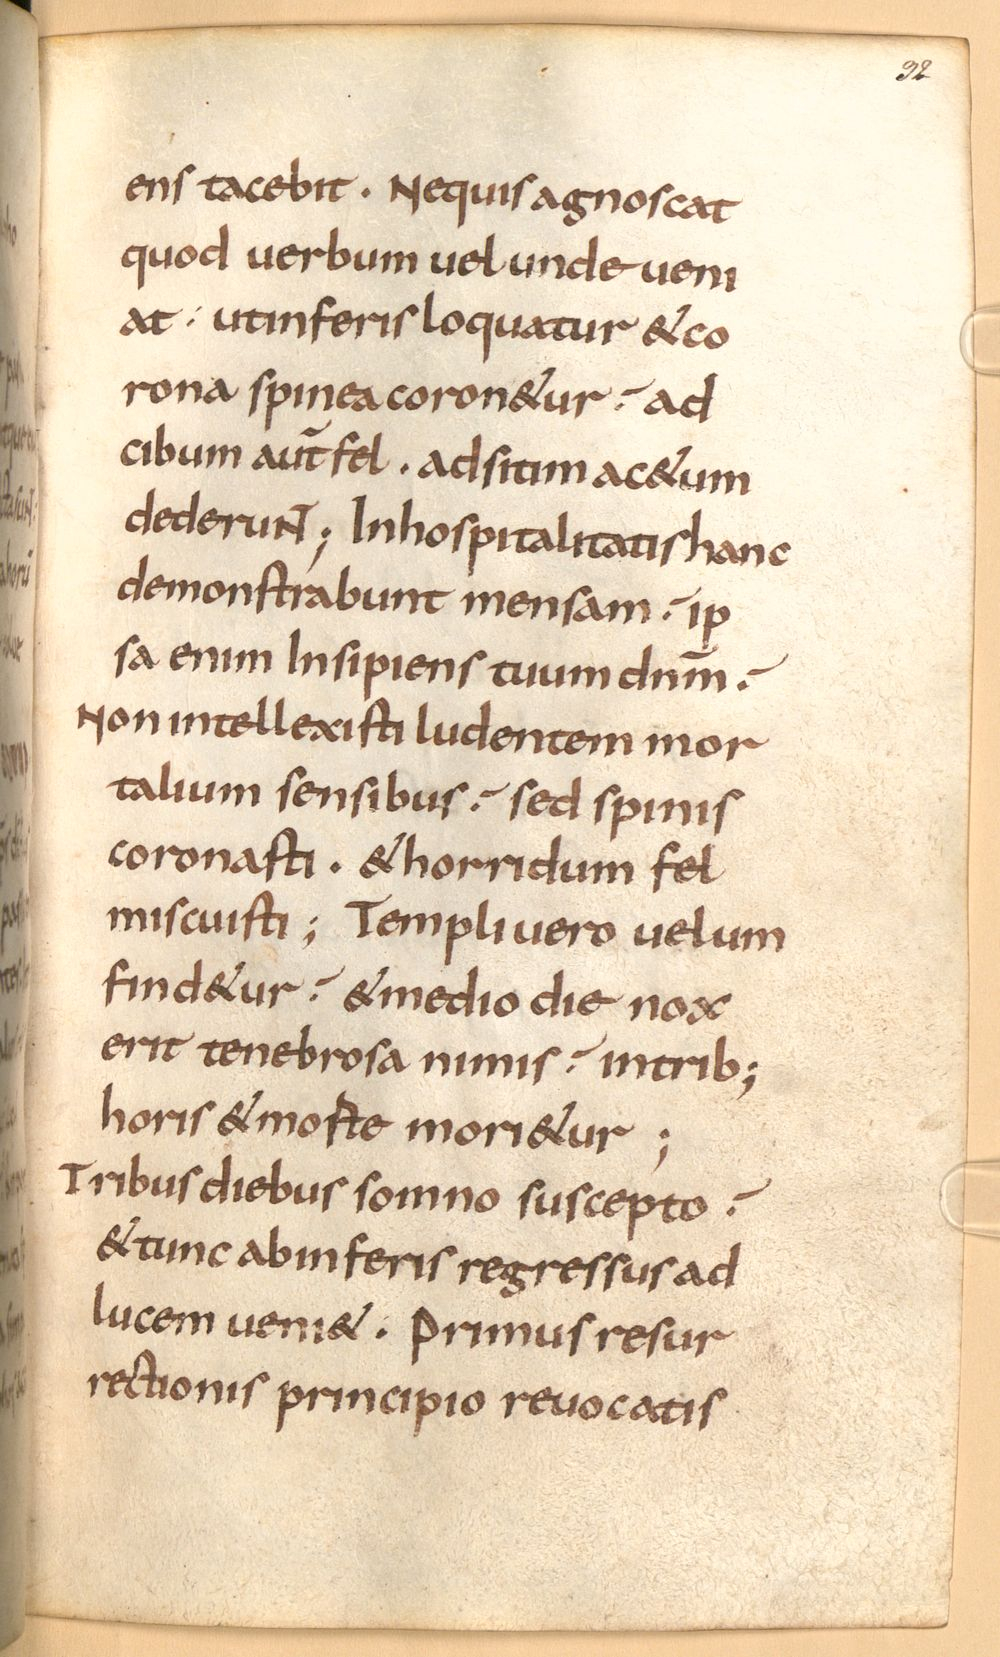 92
ens tacebit. Nequis agnoscat
quod verbum vel unde veni
at : utinferis loquatur & co
rona spinea coron&ur : ad
cibum aut̄ fel . ad sitim ac&um
dederuNT ; Inhospitalitatis hanc
demonstrabunt mensam : ip
sa enim Insipiens tuum dnm̄ :
Non intellexisti ludentem mor
talium sensibus : sed spinis
coronasti . & horridum fel
miscuisti ; Templi vero velum
find&ur : & medio die nox
erit tenebrosa nimis : in trib;
horis & moste mori&ur ;
Tribus diebus somno suscepto :
& tunc ab inferis regressus ad
lucem veni& . Primus resur
rectionis principio revocatis